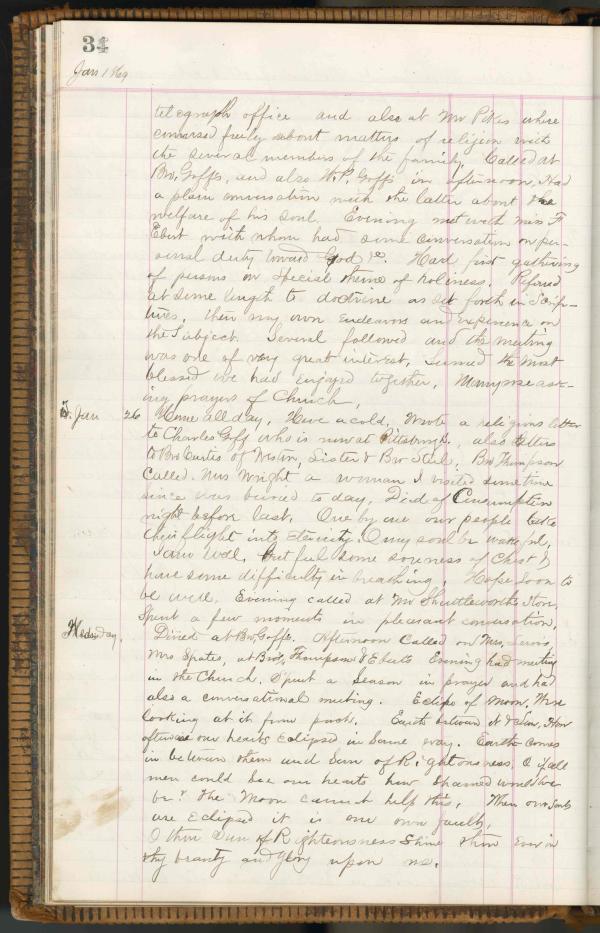 34
Jan 1869
telegraph office and also at Mr Pikes where
conversed freely about matters of religion with
the several members of the family. Called at
Bro. Goffs, and also W. P. Goffs in afternoon, Had
a plain conversation with the latter about the
welfare of his soul. Evening met with Miss F
Ebert with whom had some conversation on per-
sonal duty toward God &c. Had first gathering
of persons on special theme of holiness. Refered
at some length to doctrine as set forth in Scrip-
tures, then my own endeavors and experience on
the Subject. Several followed and the meeting
was one of very great interest, seemed the most
blessed we had enjoyed together, Many rose ask-
ing prayers of Church,
Jan 26 Home all day, Have a cold, Wrote a religious letter
to Charles Goff who is now at Pittsburgh, also letters
to Bro Curtis of Weston, Sister & Bro Steel, Bro Thompson
Called. Mrs Wright a woman I visited sometime
since was buried to day, Died of Consumption
night before last. One by one our people take
their flight into Eternity. O my soul be wakeful,
I am well, but feel some soreness of Chest &
have some difficulty in breathing, Hope soon to
be well. Evening called at Mr Shuttleworths Store
Spent a few moments in pleasant conversation.
Wednsday. Dined at Bro Goffs. Afternoon Called on Mrs. Lewis,
Mrs Spates, at Bros, Thompson & Eberts Evening had meeting
in the Church. Spent a Season in prayer and had
also a conversational meeting. Eclipse of Moon, Were
looking at it from porch. Earth between it & Sun, How
often are our hearts Eclipsed in Same way. Earth comes
in between them and Sun of Rightousness. O if all
men could see our hearts how Shamed would we
be? The Moon cannot help this, When our Souls
are Eclipsed it is our own faults,
O thou Sun of Righteousness Shine thou Ever in
thy beauty and glory upon us.